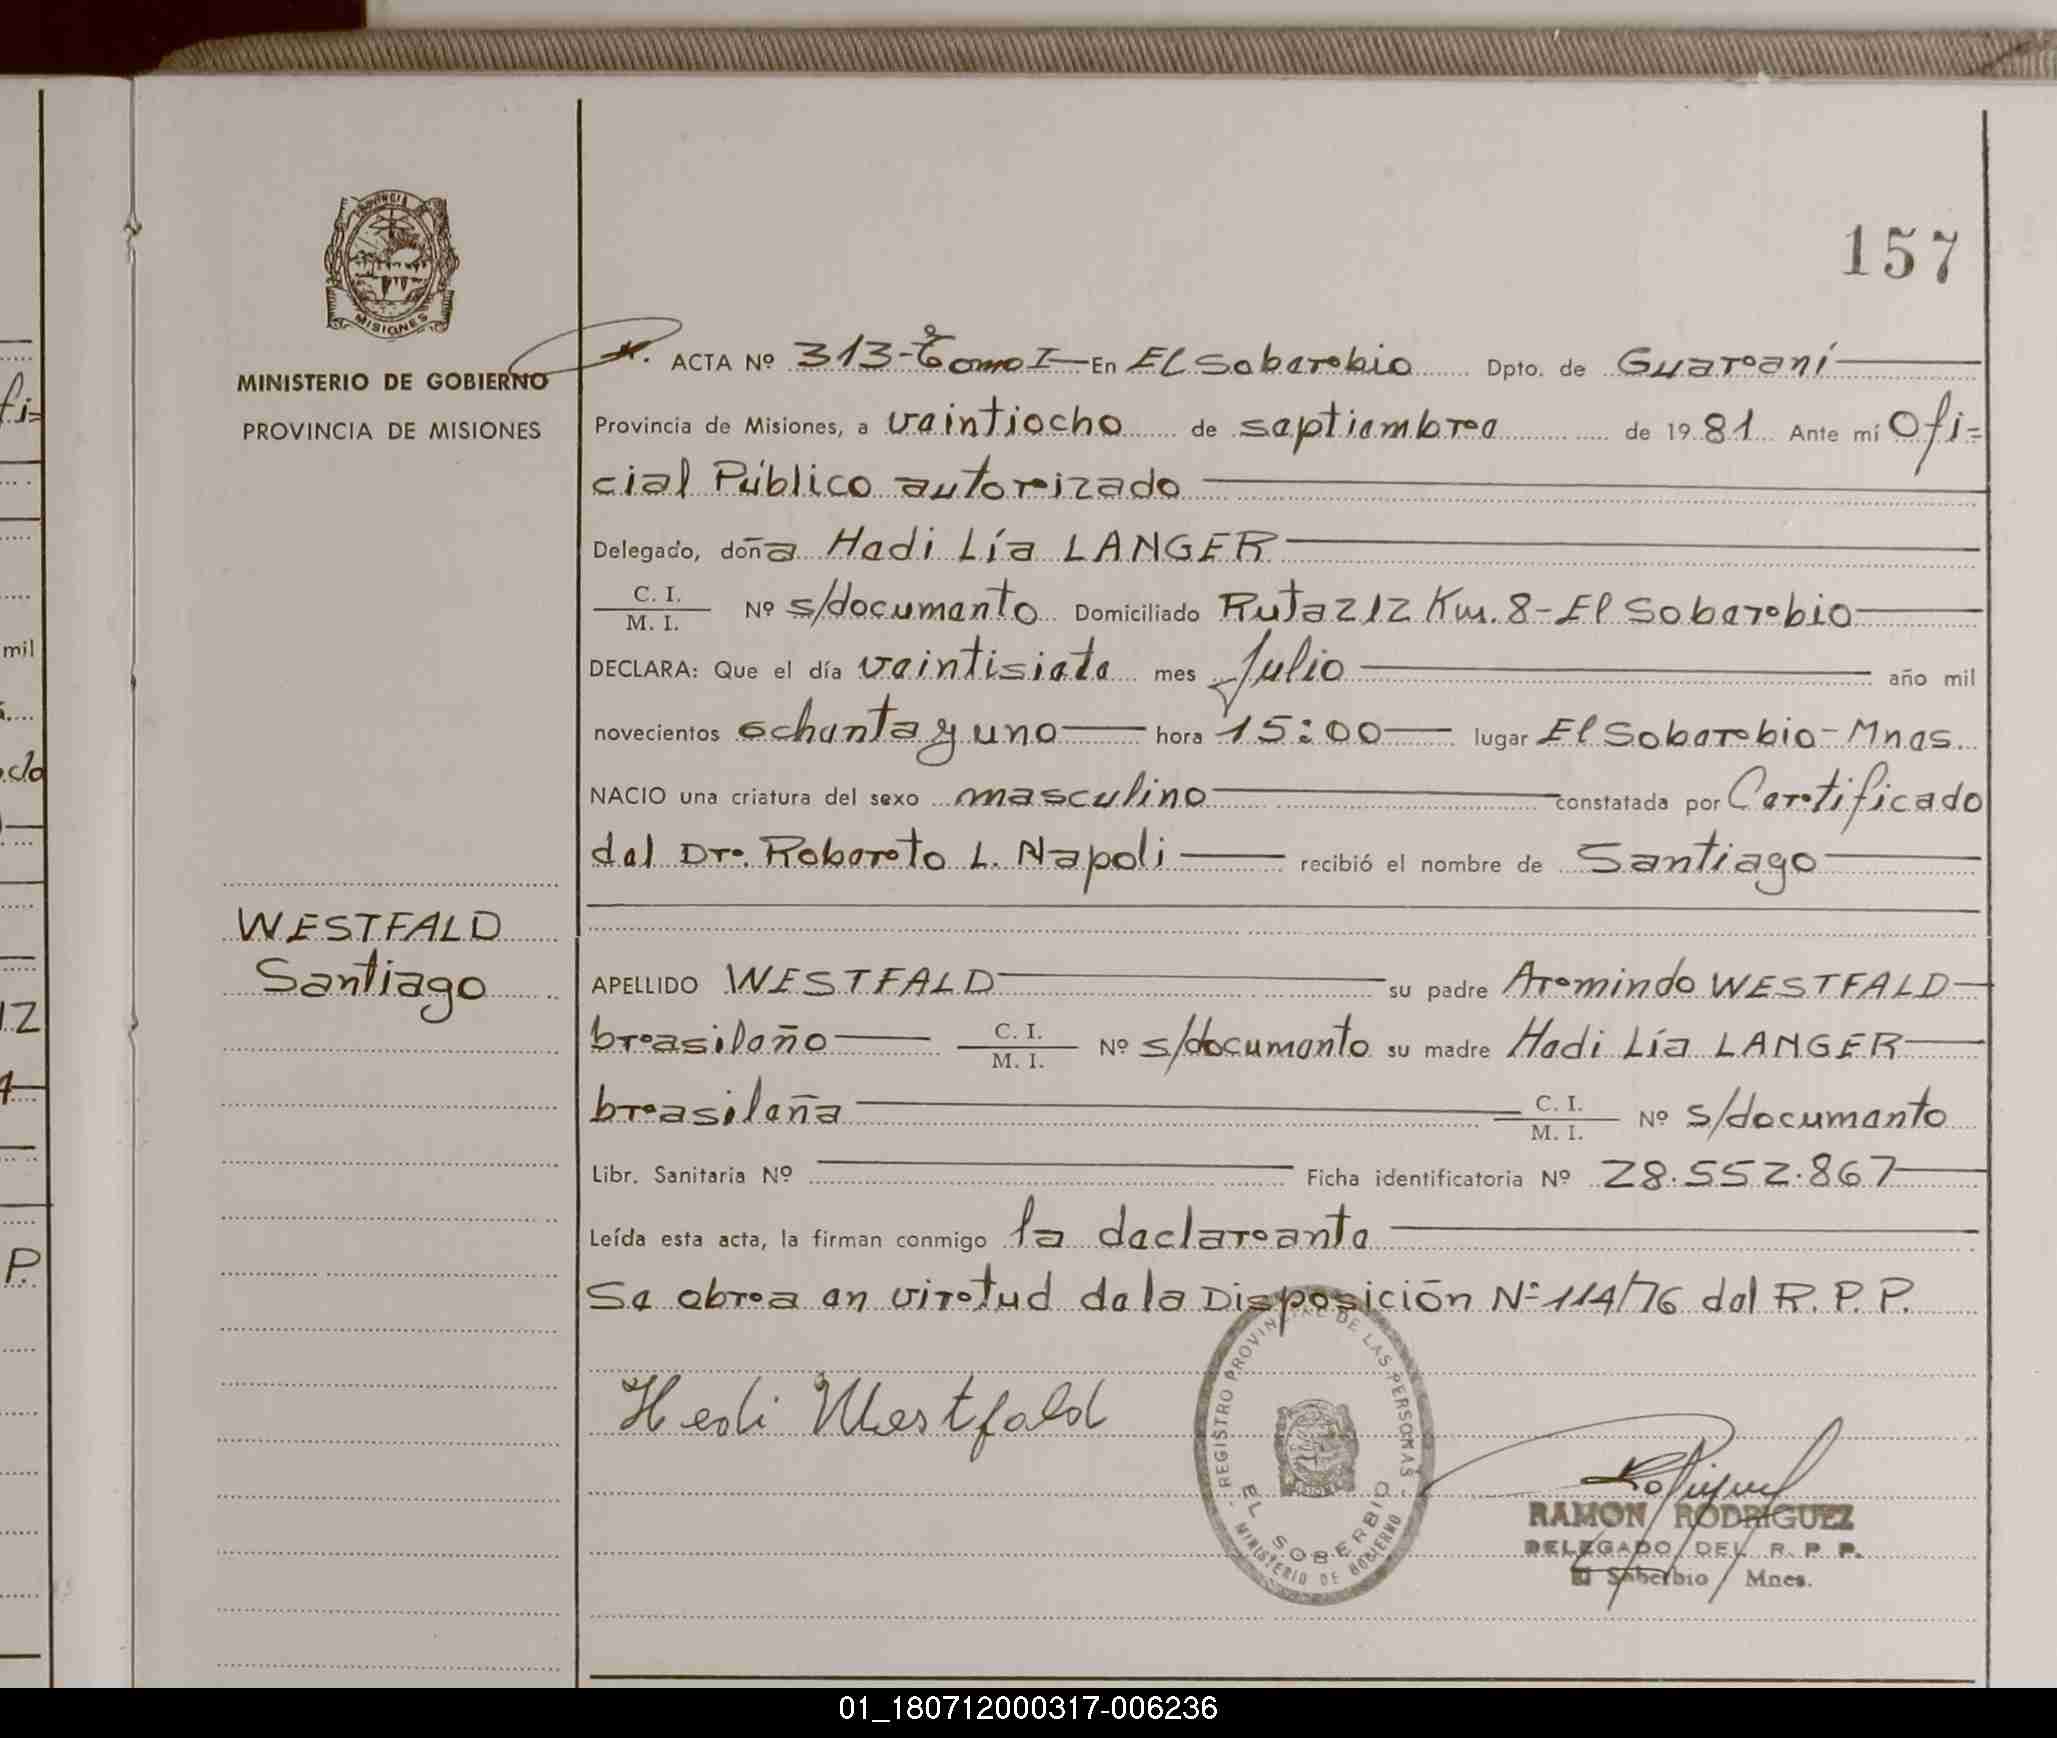 157
PROVINCIA DE
MISIONES
MINISTERIO DE GOBIERNO
PROVINCIA DE MISIONES
ACTA Nº 313-Tomo I En El Soberbio Dpto. de Guaraní
Provincia de Misiones, a veintiocho de septiembre de 1981 Ante mí Ofi=
cial Público autorizado
Delegado, doña Hedi Lía LANGER
C. I.
M. I. Nº s/documento Domiciliado Ruta 212 Km. 8-El Soberbio
DECLARA: Que el día veintisiete mes Julio año mil
novecientos ochenta y uno hora 15:00 lugar El Soberbio-Mnes.
NACIO una criatura del sexo masculino constatada por Certificado
del Dr. Roberto L. Napoli recibió el nombre de Santiago
WESTFALD
Santiago
APELLIDO WESTFALD su padre Armindo WESTFALD
brasileño C. I.
M. I. Nº s/documento su madre Hedi Lía LANGER
brasileña C. I.
M. I. Nº s/documento
Libr. Sanitaria Nº Ficha identificatoria Nº 28.552.867
Leída esta acta, la firman conmigo la declarante
Se obra en virtud de la Disposición Nº 114/76 del R. P. P.
Hedi Westfald
REGISTRO PROVINCIAL DE LAS PERSONAS
EL SOBERBIO
MINISTERIO DE GOBIERNO
RAMON RODRIGUEZ
DELEGADO DEL R. P. P.
El Soberbio Mnes.
fi=
mil
do
12
P.
01_180712000317-006236